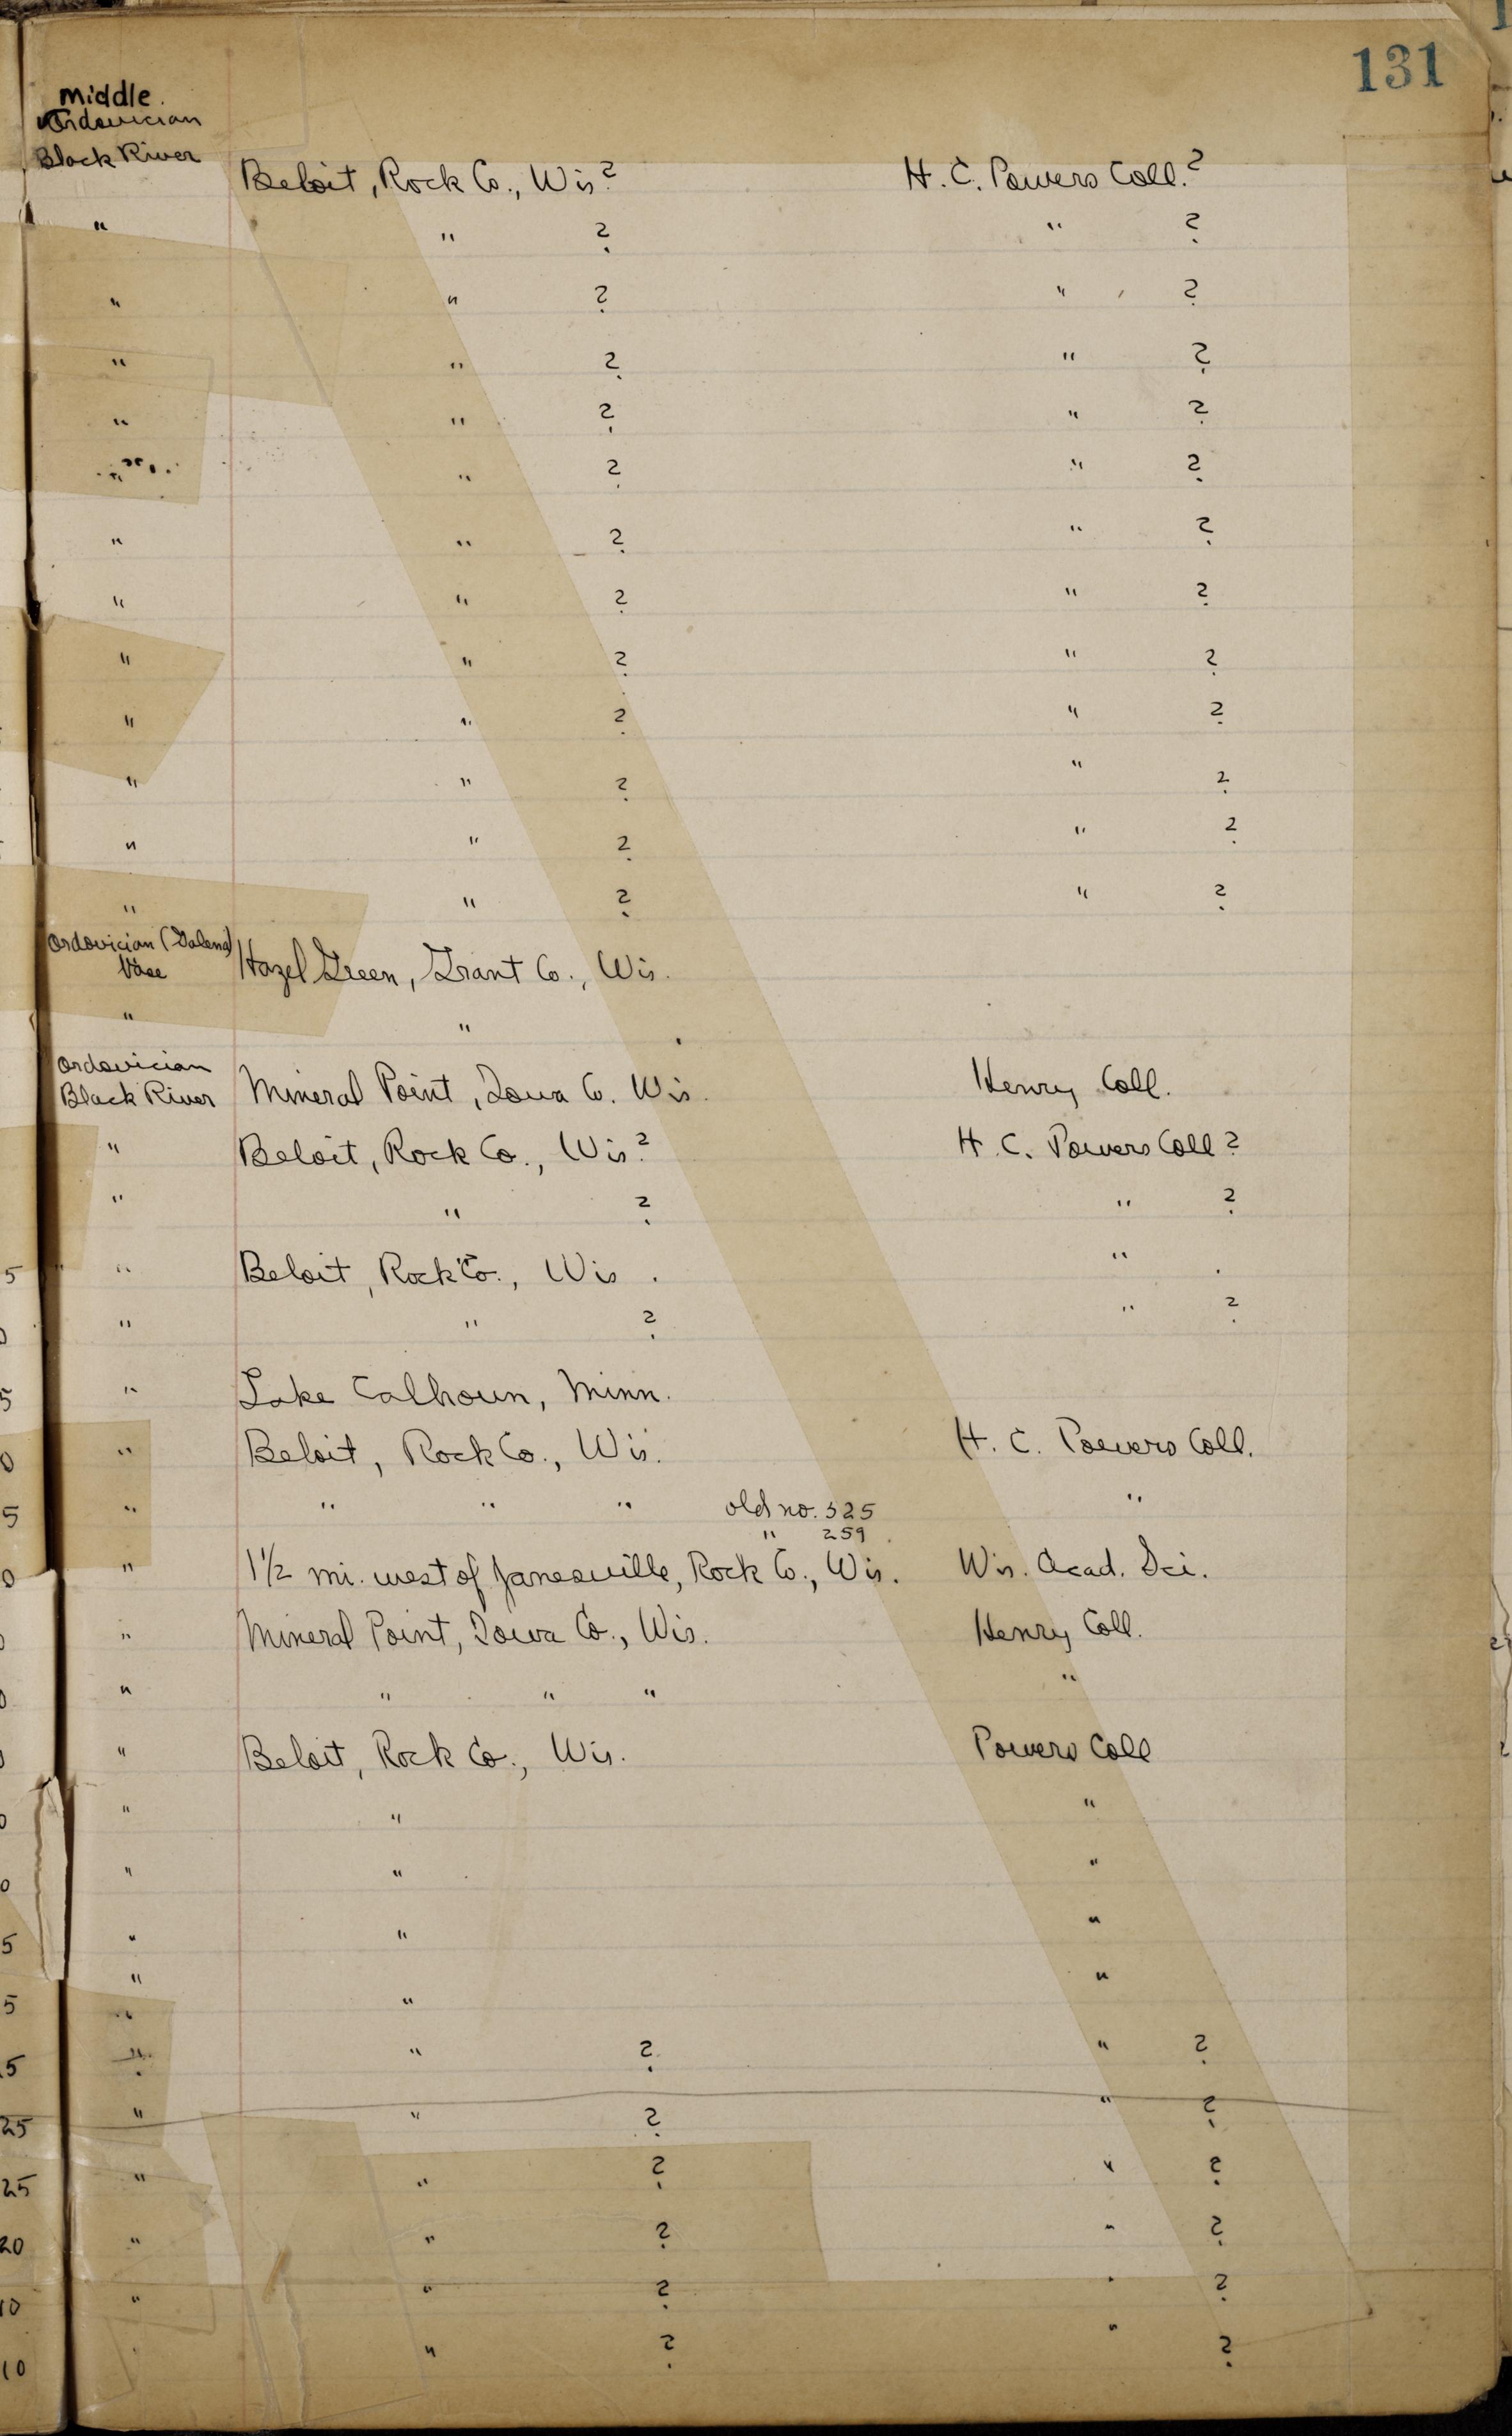 131
Middle
Ordovician
Black River Beloit, Rock Co., Wis? H. C. Powers Coll.?
" " ? " ?
" " ? " ?
" " ? " ?
" " ? " ?
" " ? " ?
" " ? " ?
" " ? " ?
" " ? " ?
" " ? " ?
" " ? " ?
" " ? " ?
" " ? " ?
Ordovician (Galena)
base Hazel Green, Grant Co., Wis.
" "
Ordovician
Black River Mineral Point, Iowa Co. Wis. Henry Coll.
" Beloit, Rock Co., Wis? H. C. Powers Coll?
" " ? " ?
5 " Beloit, Rock Co., Wis. " .
" " ? " ?
5 " Lake Calhoun, Minn.
0 " Beloit, Rock Co., Wis. H. C. Powers Coll.
5 " " " " old no. 325 "
" 259
0 " 1½ mi. west of Janesville, Rock Co., Wis. Wis. Acad. Sci.
" Mineral Point, Iowa Co., Wis. Henry Coll.
0 " " " " "
" Beloit, Rock Co., Wis. Powers Coll
0 " " "
0 " " "
5 " " "
" "
5 " "
5 " " ? " ?
25 " " ? " ?
25 " " ? " ?
20 " " ? " ?
10 " " ? " ?
10 " ? " ?